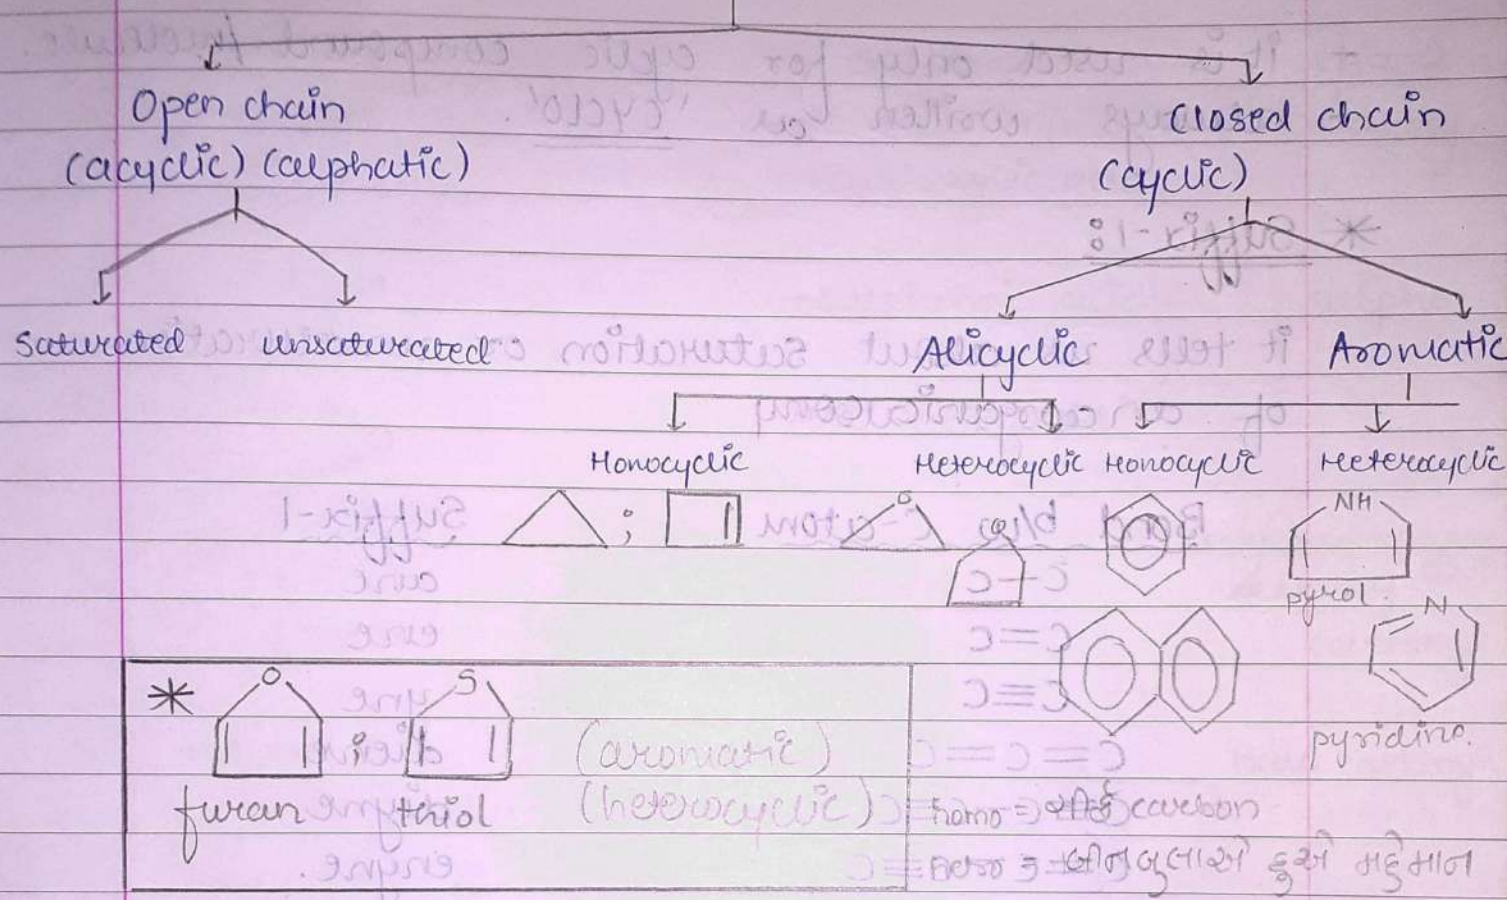 Open chain
(acyclic) (alphatic)
Closed chain
(cyclic)
Saturated unsaturated
Alicyclic
Aromatic
Homocyclic
Heterocyclic
Homocyclic
Heterocyclic
;
O
O
NH
pyrol.
N
pyridine.
* O ; S
(aromatic)
furan thiol
(heterocyclic)
homo = carbon
બીન બુલાએ હુએ મહેમાન